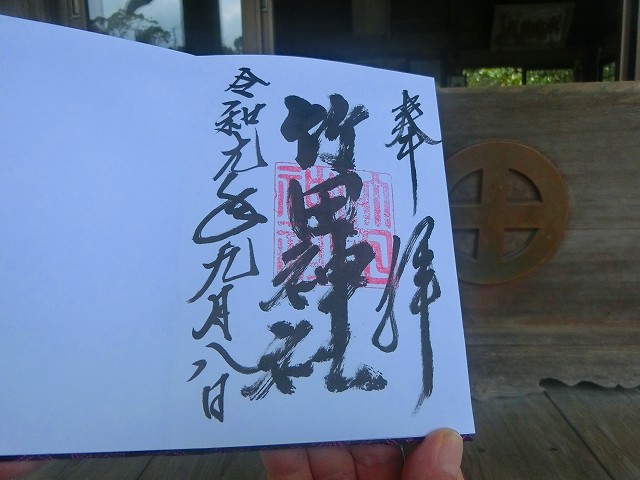 奉拝
竹田神社
令和元年九月八日